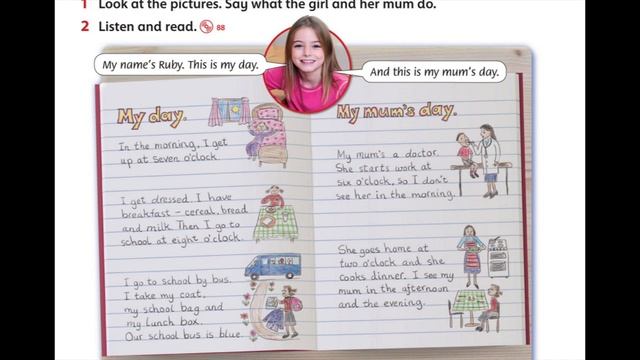 1 Look at the pictures. Say what the girl and her mum do.
2 Listen and read. 88
My name's Ruby. This is my day.
And this is my mum's day.
My day.
In the morning, I get
up at seven o'clock.
I get dressed. I have
breakfast – cereal, bread
and milk. Then I go to
school at eight o'clock.
I go to school by bus.
I take my coat,
my school bag and
my lunch box.
Our school bus is blue.
My mum's day.
My mum's a doctor.
She starts work at
six o'clock, so I don't
see her in the morning.
She goes home at
two o'clock and she
cooks dinner. I see my
mum in the afternoon
and the evening.